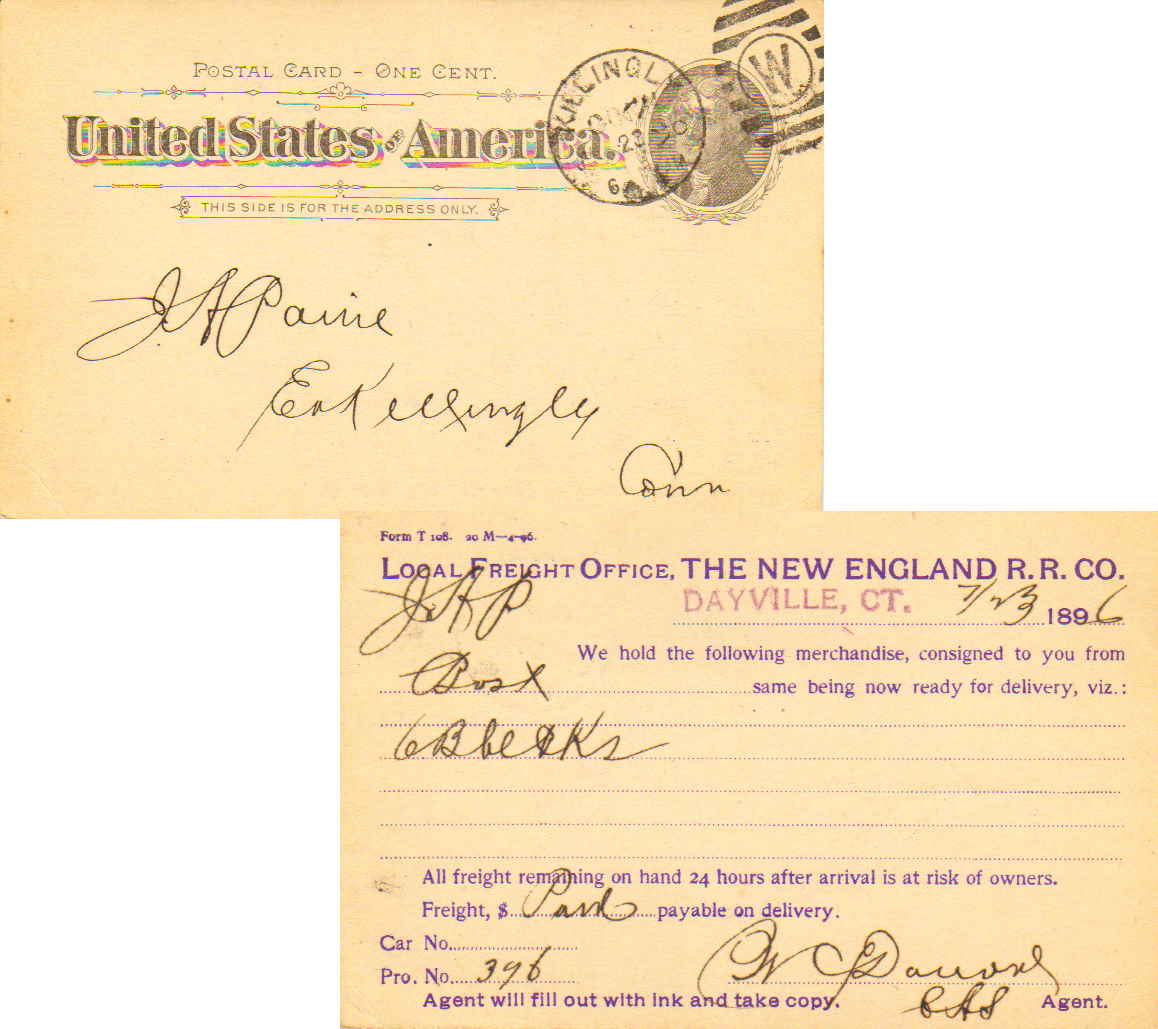 POSTAL CARD - ONE CENT.
United States OF America.
THIS SIDE IS FOR THE ADDRESS ONLY.
KILLINGLY
23
W
J A Paine
E Killingly
Conn
Form T 108. 20 M—4-96.
LOCAL FREIGHT OFFICE, THE NEW ENGLAND R. R. CO.
J A P
DAYVILLE, CT. 7/23 1896
We hold the following merchandise, consigned to you from
Bost same being now ready for delivery, viz.:
6
All freight remaining on hand 24 hours after arrival is at risk of owners.
Freight, $ Paid payable on delivery.
Car No.
Pro. No. 396
Agent will fill out with ink and take copy. Agent.